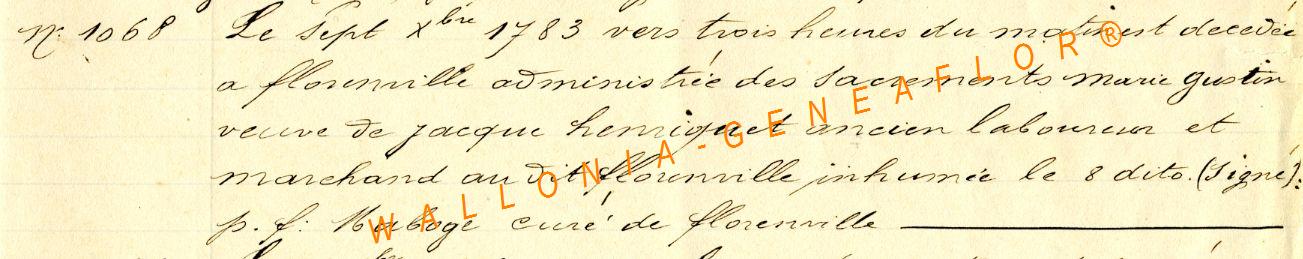 N° 1068 Le Sept Xbre 1783 vers trois heures du matin est decedée
a florenville administrée des Sacrements marie gustin
veuve de jacque henriquet ancien laboureur et
marchand au dit florenville inhumée le 8 dito. (Signé):
p. f. Maboge curé de florenville
WALLONIA-GENEAFLOR®